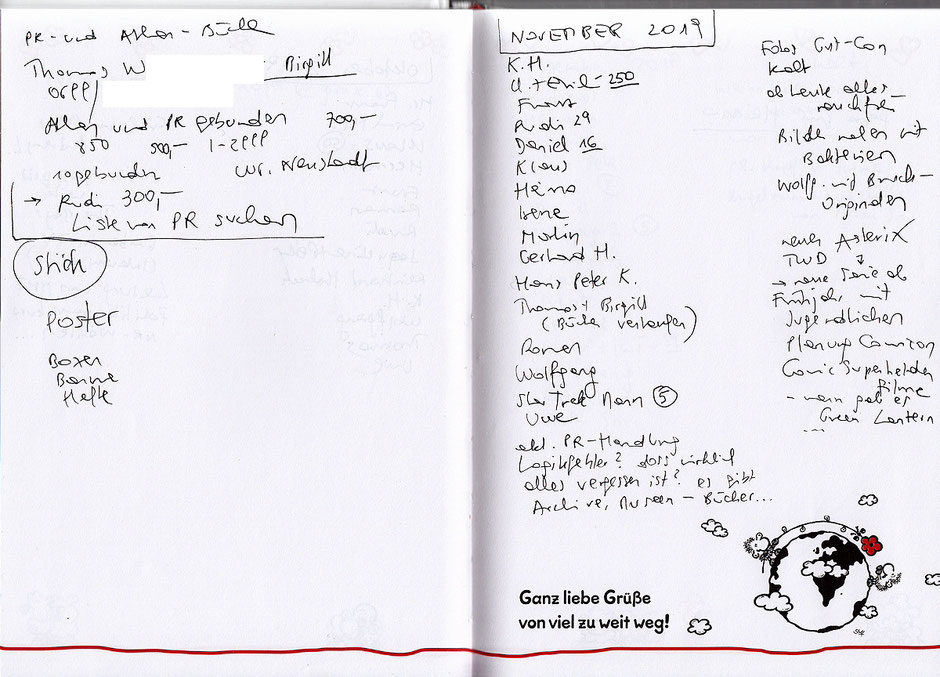 PR- und Atlan-Büch
Thomas W
Birgitt
Atlan und PR gebunden 700,-
850 500,- 1-2999
ungebunden Wr. Neustadt
→ Rudi 300,-
Liste von PR suchen
Stück
Poster
Boxen
Hefte
NOVEMBER 2019
K.H.
250
Franz
Rudi 29
Daniel 16
Klaus
Heino
Irene
Martin
Gerhard H.
Hans Peter K.
Thomas + Birgitt
(Bücher verkaufen)
Roman
Wolfgang
Star Trek Mann 5
Uwe
akt. PR-Handlung
Logikfehler? dass wirklich
alles vergessen ist? es gibt
Archive, Museen - Bücher...
Fotos Gut-Con
kalt
ob heute alles
rauchfrei
Bilder malen mit
Bakterien
Wolfg. mit Bruck-
Originalen
neuer Asterix
TWD
→ neue Serie ab
Frühjahr mit
Jugendlichen
Planung Comicon
Comic Superhelden
Filme
- wann gab es
Green Lantern
...
Ganz liebe Grüße
von viel zu weit weg!